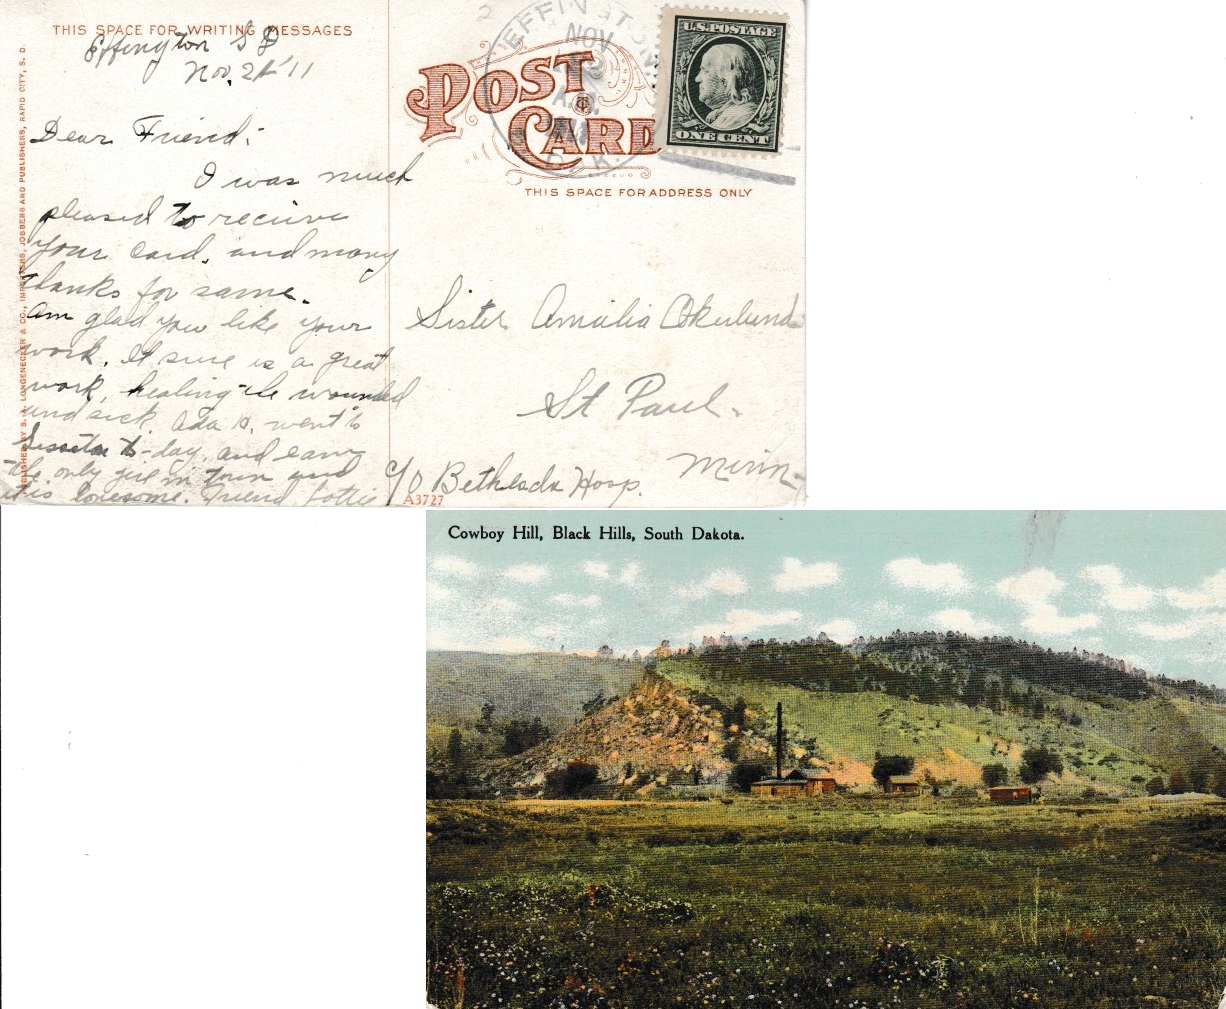 THIS SPACE FOR WRITING MESSAGES
Effington S D
Nov. 24 '11
Dear Friend:
I was much
pleased to receive
your card, and many
thanks for same.
Am glad you like your
work. It sure is a great
work, healing the wounded
and sick. Ada H. went to
Sisseton to-day, and I am
the only girl in town and
it is lonesome. Friend Lottie
PUBLISHED BY S. A. LONGENECKER & CO., IMPORTERS, JOBBERS AND PUBLISHERS, RAPID CITY, S. D.
POST
CARD
THIS SPACE FOR ADDRESS ONLY
EFFINGTON
NOV
A.M.
DAK.
U.S. POSTAGE
ONE CENT
Sister Amalia
St Paul.
Minn.
c/o Bethesda Hosp.
A3727
Cowboy Hill, Black Hills, South Dakota.